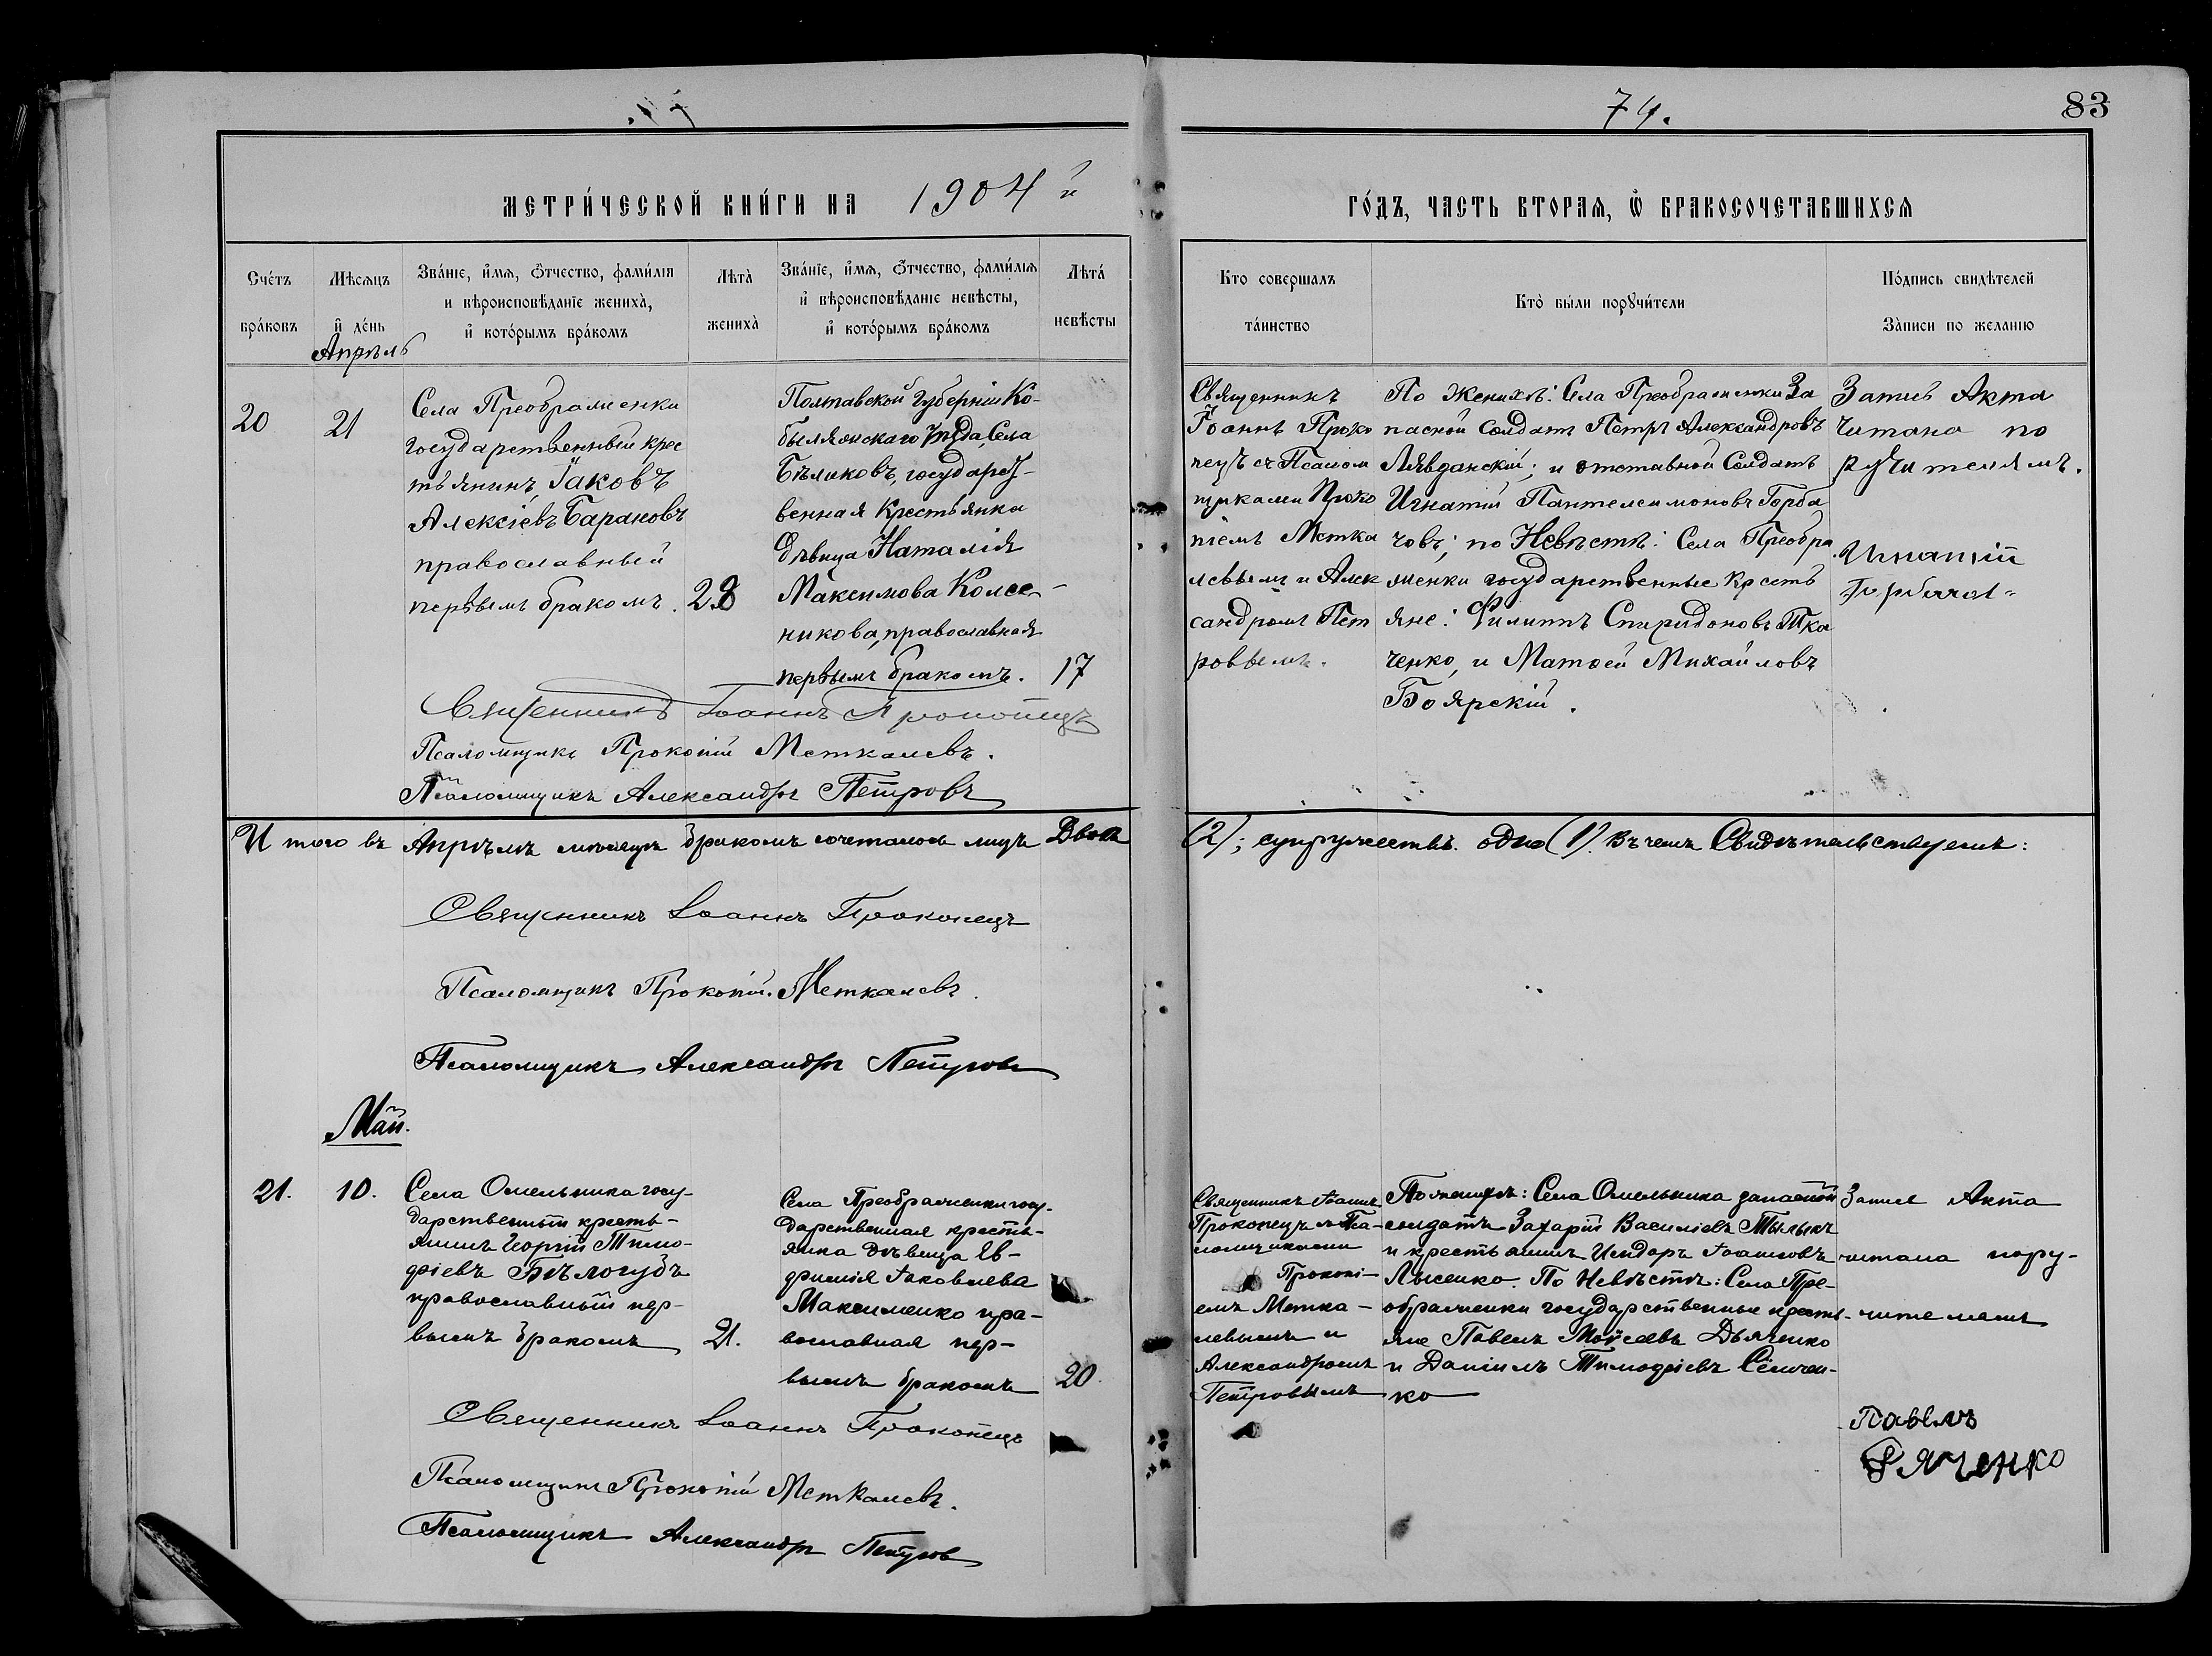 74.
83
МЕТРИ́ЧЕСКОЙ КНИ́ГИ НА 1904 й
ГО́ДЪ, ЧАСТЬ ВТОРАЯ, Ѡ БРАКОСОЧЕТАВШИХСЯ
Сче́тъ бра́ковъ
Мѣсяцъ и де́нь
Апрѣль
Зва́ніе, и́мя, о́тчество, фами́лія
и вѣроисповѣданіе жениха̀,
и кото́рымъ бра́комъ
Лѣта̀ жениха̀
Зва́ніе, и́мя, о́тчество, фами́лія
и вѣроисповѣданіе невѣсты,
и кото́рымъ бра́комъ
Лѣта́ невѣсты
Кто совершалъ та́инство
Кто̀ бы́ли порꙋчи́тели
По́дпись свидѣтелей
За̀писи по желанію
20
21
Села Преображенки
государственный крес
тьянинъ, Іаковъ
Алексіевъ Барановъ
православный
первымъ бракомъ.
28
Полтавской губерніи Ко-
быляжскаго уѣзда, Села
Бѣликовъ, государст-
венная Крестьянка
дѣвица Наталія
Максимова Колес-
никова, православная
первымъ бракомъ.
17
Священникъ
Іоаннъ Проко
пецъ съ Псалом
щиками Проко
піемъ Метка
левымъ и Алек
сандромъ Пет
ровымъ.
По Женихѣ: Села Преображенки За
пасной Солдатъ Петръ Александровъ
Лявданскій; и отставной Солдатъ
Игнатій Пантелеимоновъ Горба
човъ; по Невѣстѣ: Села Преобра
женки государственные кресть
яне: Филиппъ Спиридоновъ Тка
ченко, и Матѳей Михайловъ
Боярскій.
Запись Акта
читана по
ручителямъ.
Игнатій
Священникъ Іоаннъ Прокопецъ
Псаломщикъ Прокопій Меткалевъ.
Псаломщикъ Александръ Петровъ
Итого въ Апрѣлѣ мѣсяцѣ бракомъ сочеталось лицъ Двое
(2); супружествъ одно (1). Въ чемъ Свидѣтельствуемъ:
Священникъ Іоаннъ Прокопецъ
Псаломщикъ Прокопій Меткалевъ.
Псаломщикъ Александръ Петровъ
Май.
21.
10.
Села Омельника госу-
дарственный кресть-
янинъ Георгій Тимо-
фіевъ Бѣлогубъ
православный пер-
вымъ бракомъ
21.
Села Преображенки госу-
дарственная кресть-
янка дѣвица Ев-
фимія Іаковлева
Максименко пра-
вославная пер-
вымъ бракомъ
20.
Священникъ Іоаннъ
Прокопецъ и Пса-
ломщиками
Прокопі-
емъ Метка-
левымъ и
Александромъ
Петровымъ
По женихѣ: Села Омельника запасной
солдатъ Захарій Василіевъ
и крестьянинъ Исидоръ Іоанновъ
Лысенко. По Невѣстѣ: Села Пре-
ображенки государственные кресть-
яне Павелъ Моисеевъ Дьяченко
и Даніилъ Тимофіевъ
ко
Запись Акта
читана пору-
чителямъ
Павелъ
Дяченко
Священникъ Іоаннъ Прокопецъ
Псаломщикъ Прокопій Меткалевъ.
Псаломщикъ Александръ Петровъ